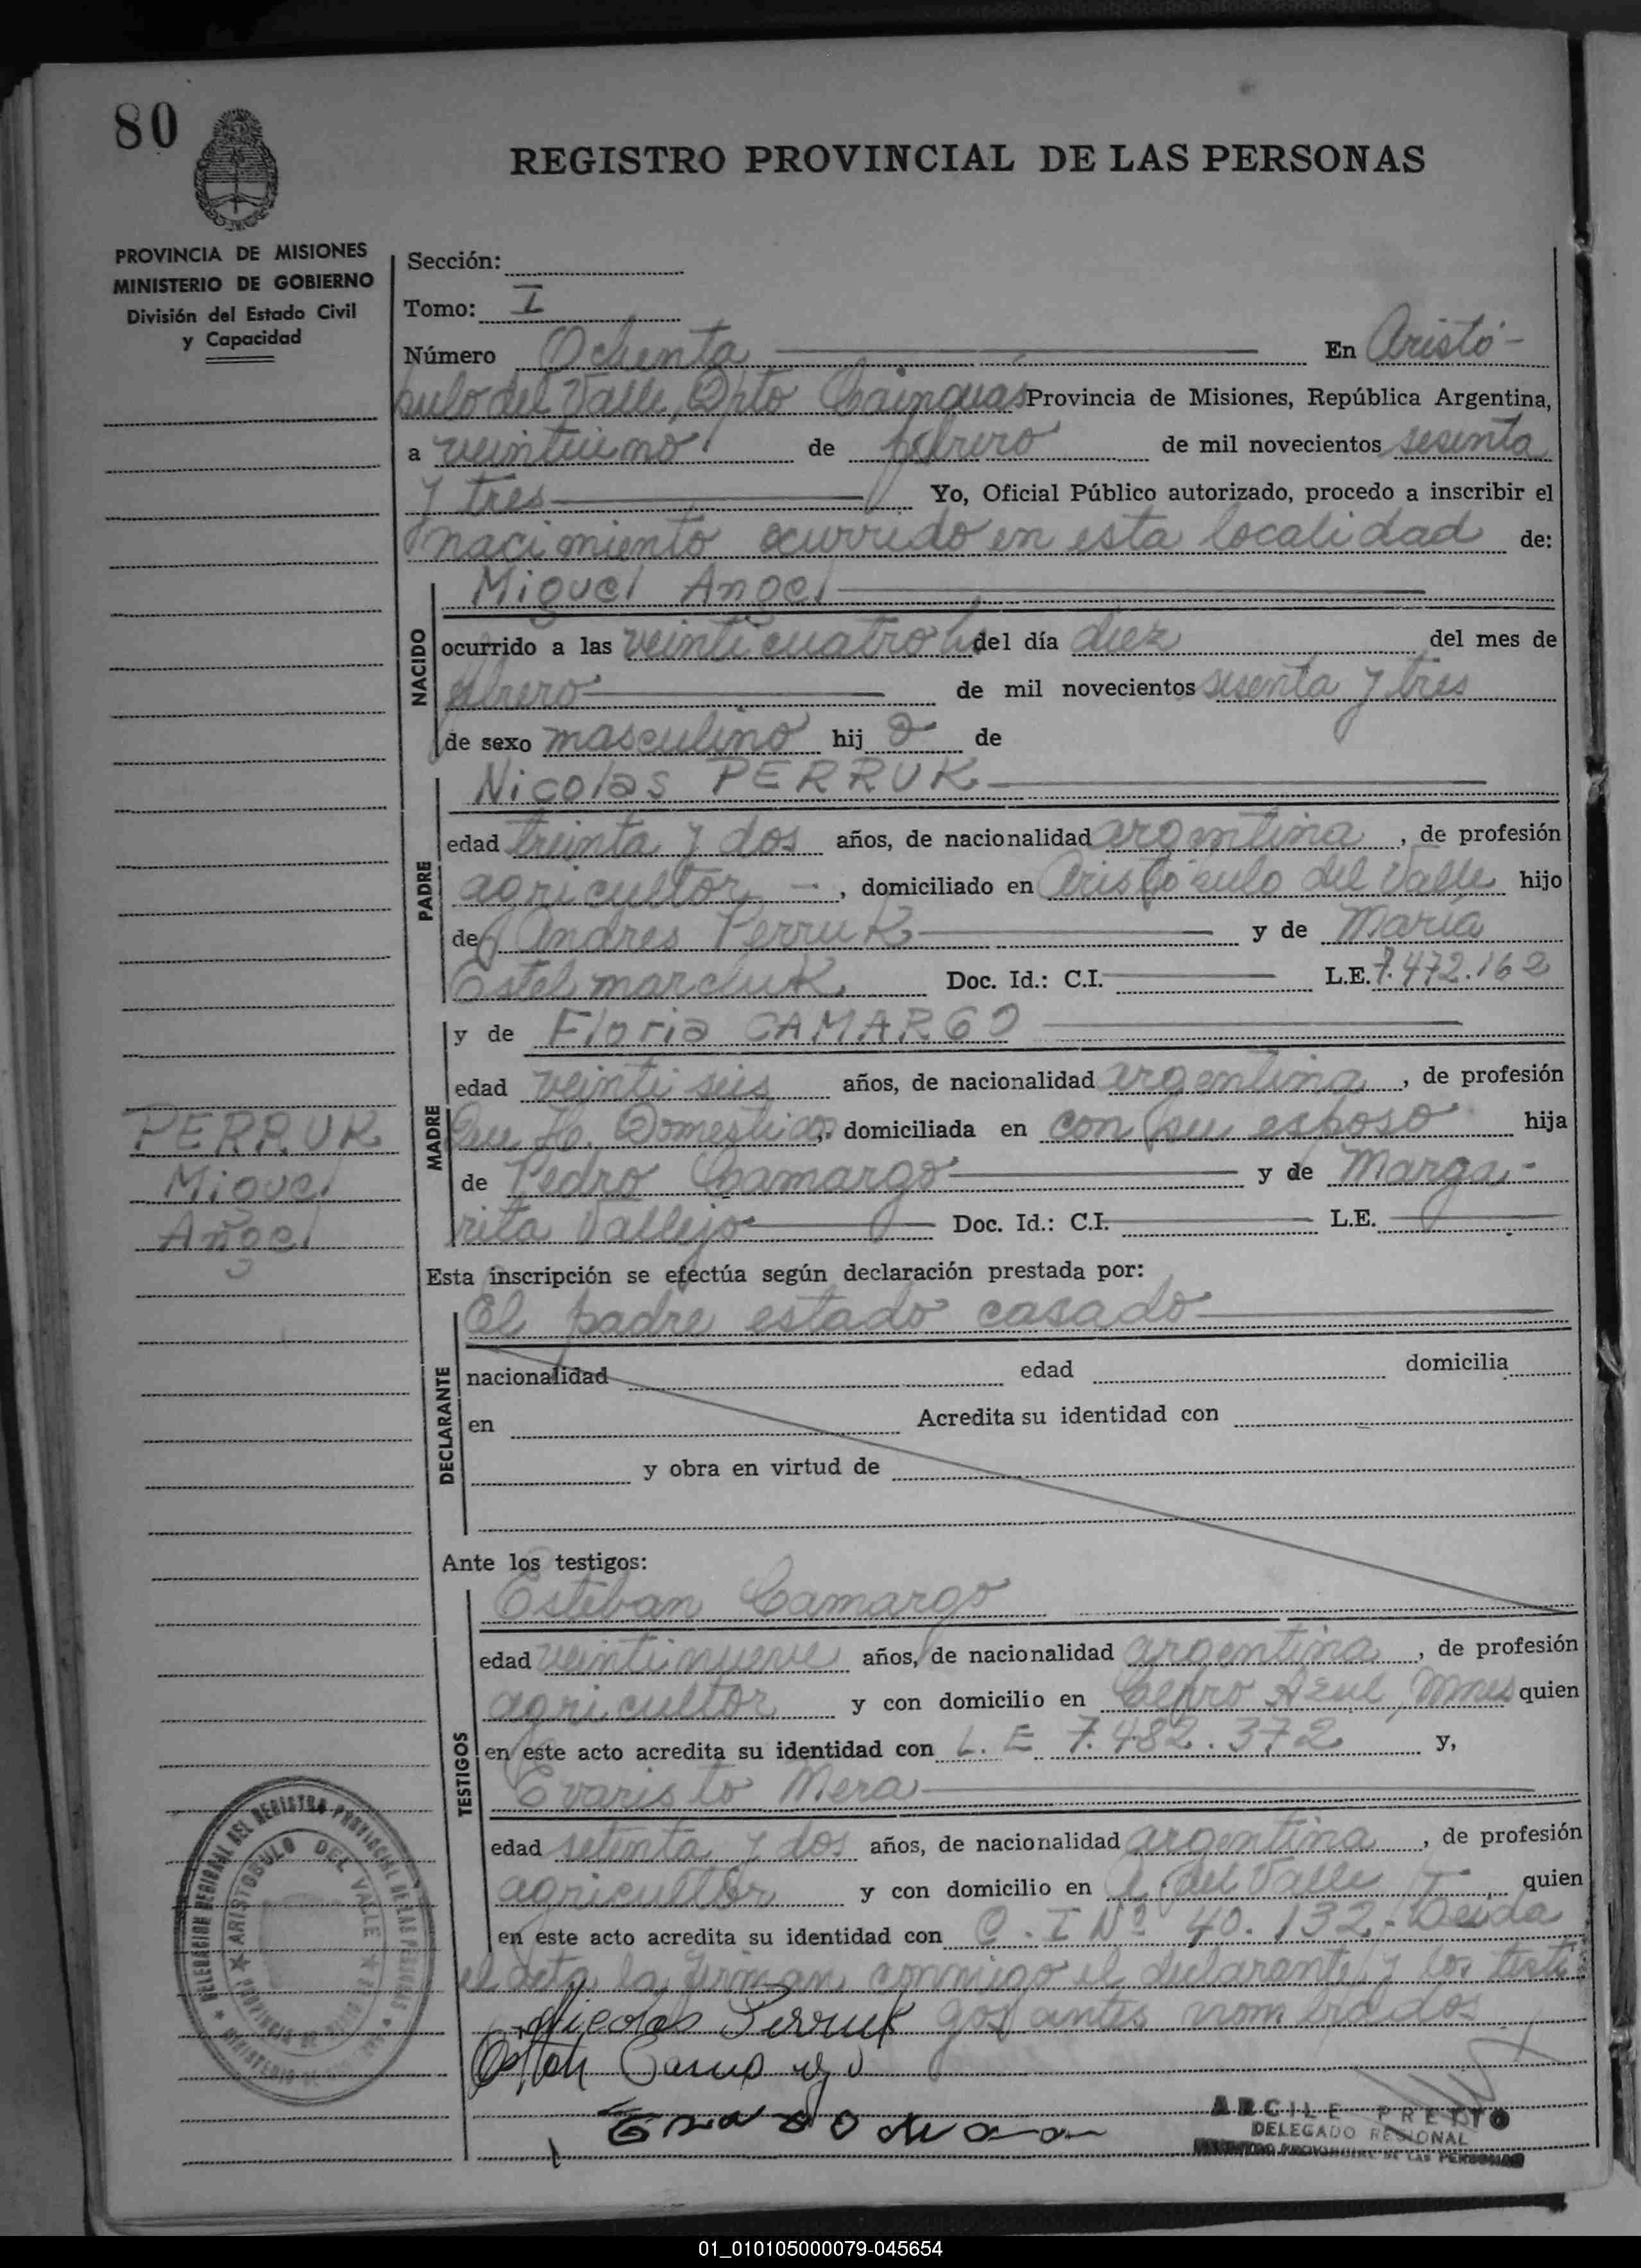 80
REGISTRO PROVINCIAL DE LAS PERSONAS
PROVINCIA DE MISIONES
MINISTERIO DE GOBIERNO
División del Estado Civil
y Capacidad
Sección:
Tomo: I
Número Ochenta En Aristó-
bulo del Valle, Dpto Cainguas Provincia de Misiones, República Argentina,
a veintiuno de febrero de mil novecientos sesenta
y tres Yo, Oficial Público autorizado, procedo a inscribir el
nacimiento ocurrido en esta localidad de:
NACIDO
Miguel Angel
ocurrido a las veinticuatro hs del día diez del mes de
febrero de mil novecientos sesenta y tres
de sexo masculino hij o de
PADRE
Nicolas PERRUK
edad treinta y dos años, de nacionalidad argentina, de profesión
agricultor, domiciliado en Aristóbulo del Valle hijo
de Andres Perruk y de María
Estel marchuk Doc. Id.: C.I. L.E. 7.472.162
MADRE
y de Floria CAMARGO
edad veinti seis años, de nacionalidad argentina, de profesión
Qu. H. Domesticos, domiciliada en con su esposo hija
de Pedro Camargo y de Marga-
rita Vallejo Doc. Id.: C.I. L.E.
PERRUK
Miguel
Angel
Esta inscripción se efectúa según declaración prestada por:
DECLARANTE
El padre estado casado
nacionalidad edad domicilia
en Acredita su identidad con
y obra en virtud de
Ante los testigos:
TESTIGOS
Esteban Camargo
edad veintinueve años, de nacionalidad argentina, de profesión
agricultor y con domicilio en Cerro Azul, Mnes quien
en este acto acredita su identidad con L. E 7.482.372 y,
Evaristo Mera
edad setenta y dos años, de nacionalidad argentina, de profesión
agricultor y con domicilio en A. del Valle quien
en este acto acredita su identidad con C. I Nº 40.132- Leida
el acta la firman conmigo el declarante y los testi
gos antes nombrados
Nicolas Perruk
DELEGACION REGIONAL DEL REGISTRO PROVINCIAL DE LAS PERSONAS
ARISTOBULO DEL VALLE
ARCILE PRETTO
DELEGADO REGIONAL
REGISTRO PROVINCIAL DE LAS PERSONAS
01_010105000079-045654